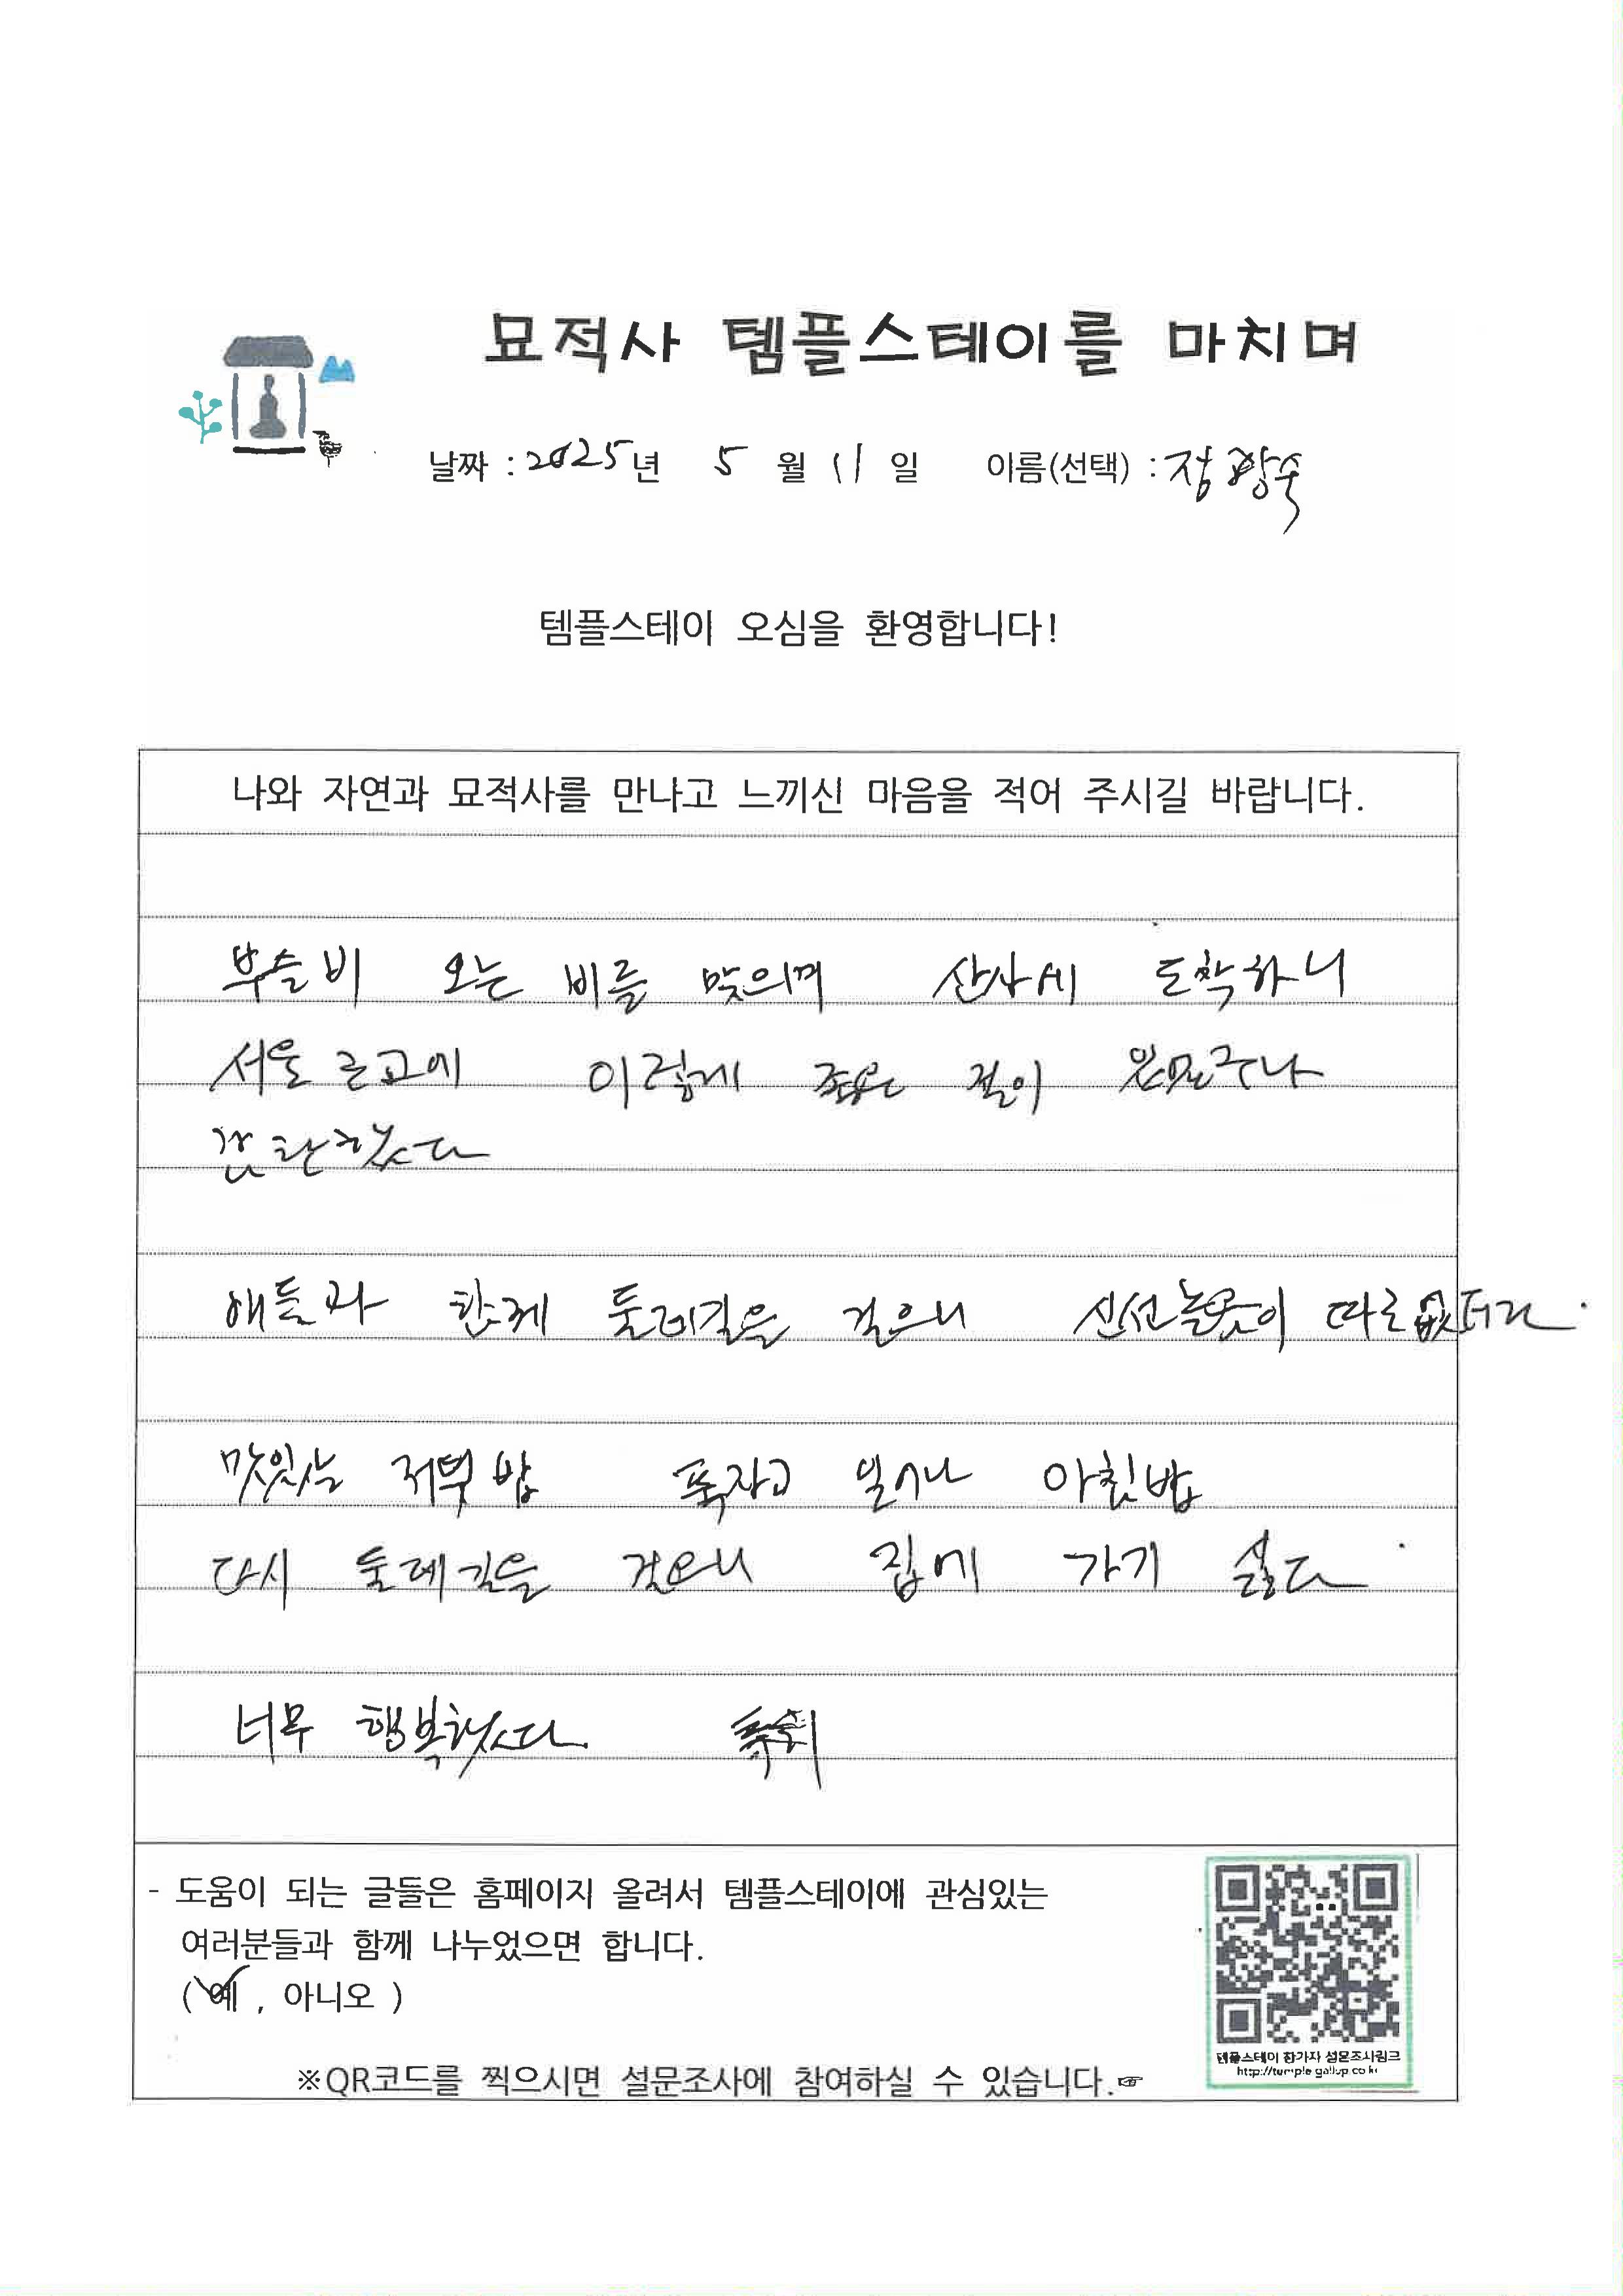 묘적사 템플스테이를 마치며
날짜 : 2025년 5월 11일 이름(선택) : 장광숙
템플스테이 오심을 환영합니다!
나와 자연과 묘적사를 만나고 느끼신 마음을 적어 주시길 바랍니다.
부슬비 오는 비를 맞으며 산사에 도착하니
서울 근교에 이렇게 좋은 절이 있었구나
감탄했다
애들과 함께 둘레길을 걸으니 신선놀음이 따로없더라.
맛있는 저녁밥 푹자고 일어나 아침밥
다시 둘레길을 걸으니 집에 가기 싫다.
너무 행복했다.
- 도움이 되는 글들은 홈페이지 올려서 템플스테이에 관심있는
여러분들과 함께 나누었으면 합니다.
( 예 , 아니오 )
※QR코드를 찍으시면 설문조사에 참여하실 수 있습니다.☞
템플스테이 참가자 설문조사링크
http://temple.gallup.co.kr